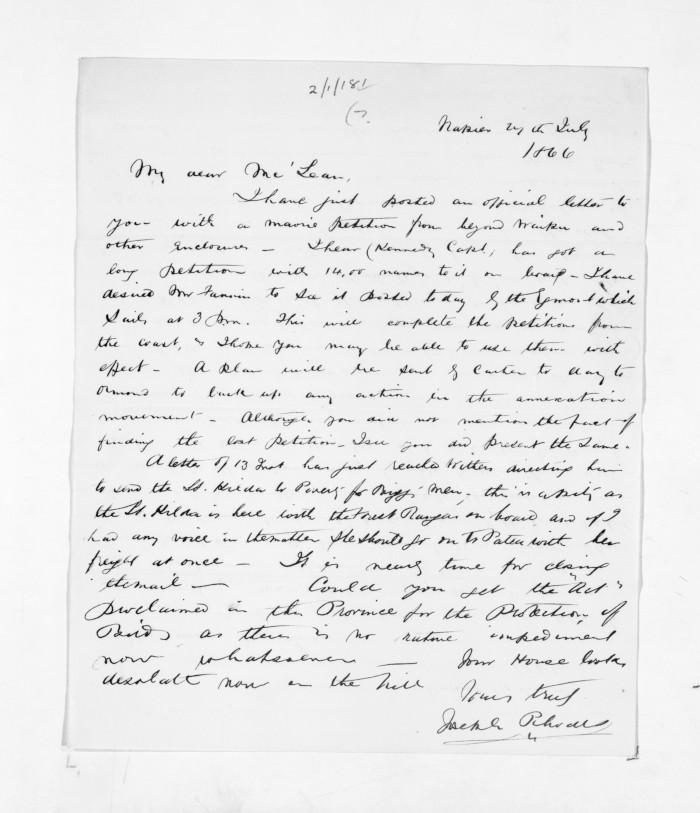 2/1/181
Napier 27th July
1866
My dear McLean,
I have just posted an official letter to
you with a maorie petition from beyond Waiku and
other Enclosures - I hear (Kennedy Capt, has got a
long petition with 14,00 names to it on board - I have
desired Mr Fannin to see it posted today by the Egmont which
sails at 3 Pm. This will complete the petitions from
the coast, & I hope you may be able to use them with
effect - A plan will be sent by Carter to day to
Ormond to back up any action in the annexation
movement - Although you did not mention the fact of
finding the lost Petition - I see you did present the same.
A letter of 13 Inst has just reached Witters directing him
to send the St. Kilda to Poverty for Biggs' men, this is a pity as
the St. Kilda is here with the Forest Rangers on board and if I
had any voice in the matter she should go on to Patea with her
freight at once - It is nearly time for closing
the mail - Could you get the "Act"
proclaimed in this Province for the Protection of
Birds as there is no native impediment
now whatsoever - Your House looks
desolate now on the hill
Yours truly
Joseph Rhodes